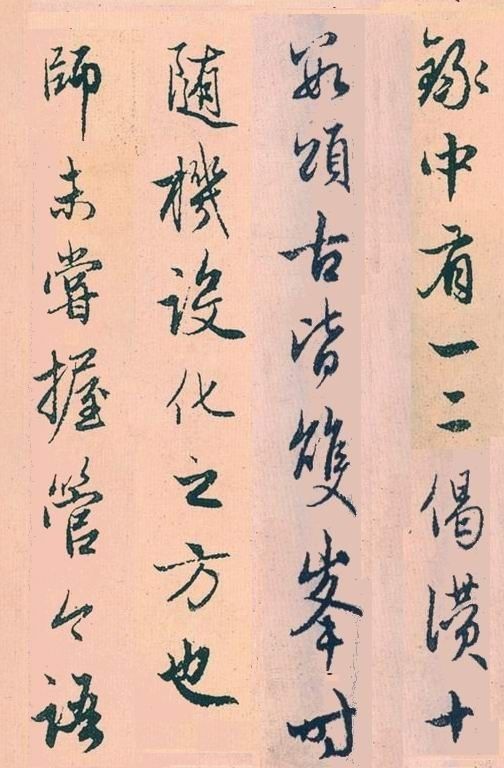 錄中有一二偈讚十
數頌古皆雙峯时
随機設化之方也
師未嘗握管今語